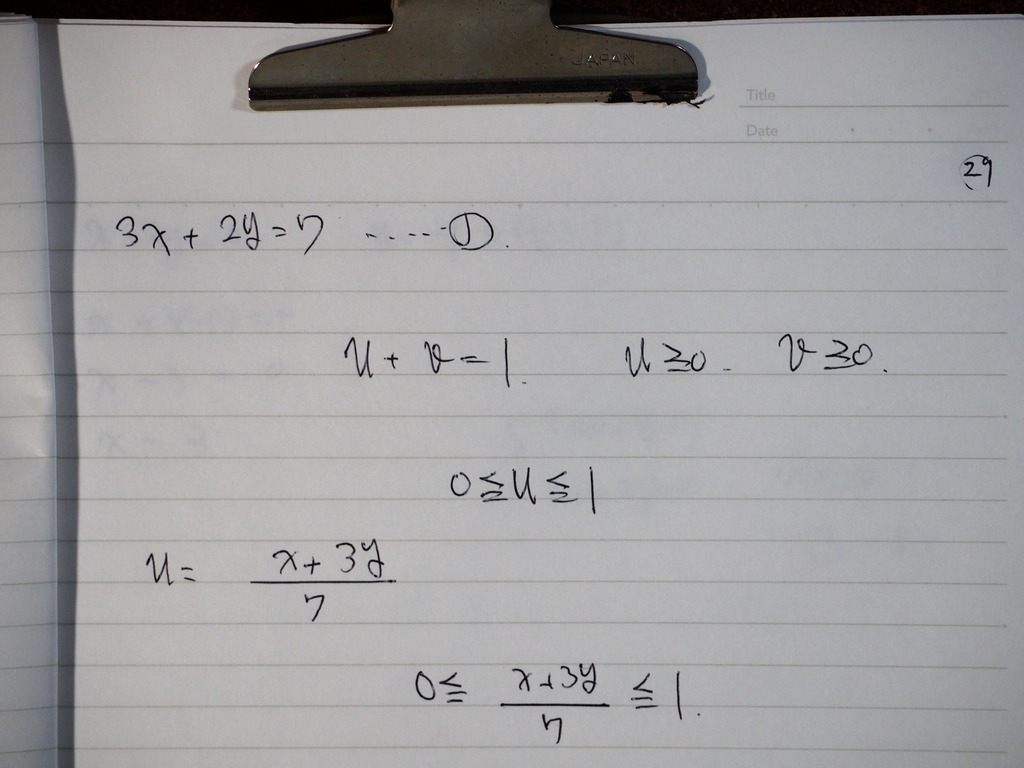 JAPAN
Title
Date
29
3x + 2y = 7 ..... ①.
u + v = 1. u ≥ 0. v ≥ 0.
0 ≦ u ≦ 1
u = (x + 3y)/7
0 ≦ (x + 3y)/7 ≦ 1.